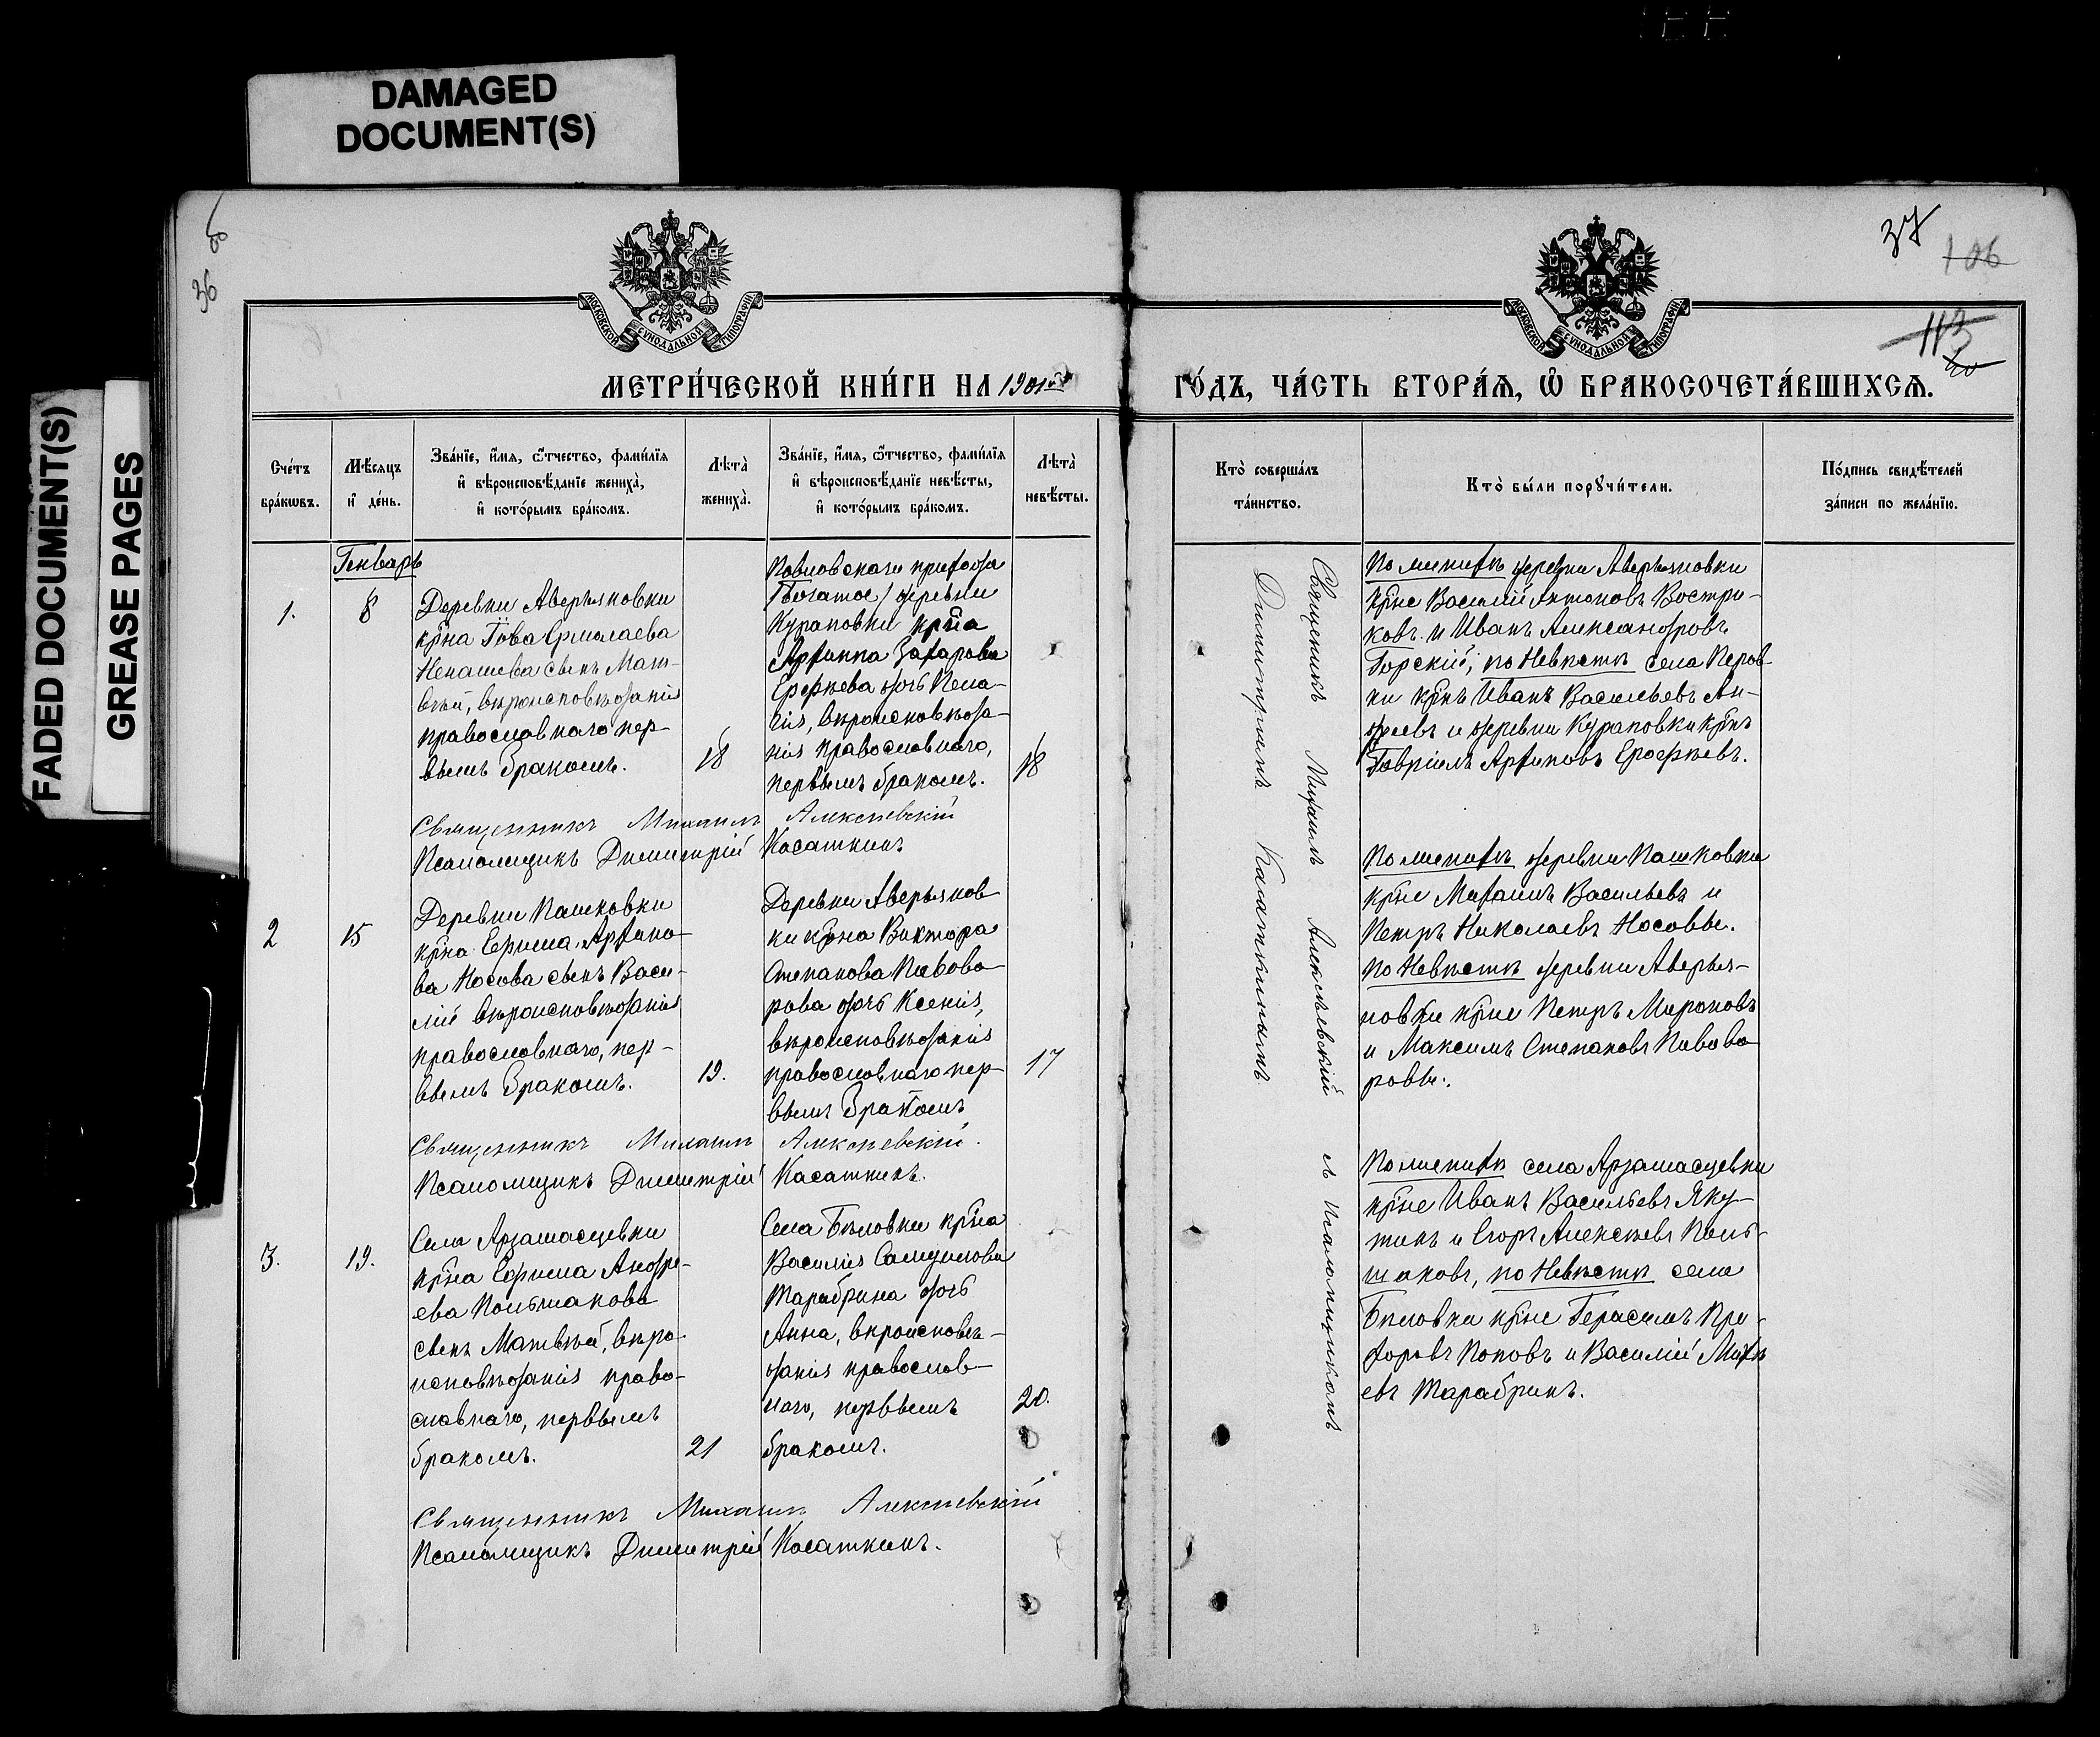 DAMAGED
DOCUMENT(S)
FADED DOCUMENT(S)
GREASE PAGES
36
37
106
113
МОСКОВСКОЙ СѴНОДАЛЬНОЙ ТИПОГРАФІИ
МОСКОВСКОЙ СѴНОДАЛЬНОЙ ТИПОГРАФІИ
МЕТРИ́ЧЕСКОЙ КНИ́ГИ НА 1901й
ГО́ДЪ, ЧА́СТЬ ВТОРА́Я, Ѽ БРАКОСОЧЕТА́ВШИХСЯ.
Сче́тъ
бра́кѡвъ.
Мѣ́сяцъ
и҆ де́нь.
Зва́нїе, и҆́мя, ѻ҆́тчество, фами́лїя
и҆ вѣроисповѣ́данїе жениха̀,
и҆ кото́рымъ бра́комъ.
Лѣта̀
жениха̀.
Зва́нїе, и҆́мя, ѻ҆́тчество, фами́лїя
и҆ вѣроисповѣ́данїе невѣ́сты,
и҆ кото́рымъ бра́комъ.
Лѣта̀
невѣ́сты.
Кто̀ соверша́лъ
та́инство.
Кто̀ бы́ли порꙋчи́тели.
По́дпись свидѣ́телей
за́писи по жела́нїю.
Генварь
1.
8
Деревни Аверьяновки
крѣна Іова Ермолаева
Ненашева сынъ Мат-
вѣй, вѣроисповѣданія
православнаго пер-
вымъ бракомъ.
18
Повловскаго прихода
/Богатое/ деревни
Кураповки крѣна
Архиппа Захарова
Ерофѣева дочь Пела-
гія, вѣроисповѣда-
нія православнаго,
первымъ бракомъ.
18
Священникъ Михаилъ Алексѣевскій
Псаломщикъ Димитрій Касаткинъ
2
15
Деревни Пашковки
крѣна Ефима Архипо-
ва Носова сынъ Васи-
лій вѣроисповѣданія
православнаго, пер-
вымъ бракомъ.
19.
Деревни Аверьянов
ки крѣна Виктора
Степанова Пивова
рова дочь Ксенія,
вѣроисповѣданія
православнаго пер-
вымъ бракомъ
17
Священникъ Михаилъ Алексѣевскій.
Псаломщикъ Димитрій Касаткинъ.
3.
19.
Села Арзамасцевки
крѣна Ефима Андре-
ева Польшакова
сынъ Матвѣй, вѣро-
исповѣданія право-
славнаго, первымъ
бракомъ.
21
Села Бѣловки крѣна
Василія Самуилова
Тарабрина дочь
Анна, вѣроисповѣ-
данія православ-
наго, первымъ
бракомъ.
20.
Священникъ Михаилъ Алексѣевскій
Псаломщикъ Димитрій Касаткинъ.
Священникъ Михаилъ Алексѣевскій съ псаломщикомъ
Димитріемъ Касаткинымъ
По женихѣ деревни Аверьяновки
крѣне Василій Антоновъ Востри-
ковъ и Иванъ Александровъ
Горскій; по Невѣстѣ села Перов
ки крѣнъ Иванъ Васильевъ Ан-
дреевъ и деревни Кураповки крѣнъ
Гавріилъ Архиповъ Ерофѣевъ.
По женихѣ деревни Пашковки
крѣне Михаилъ Васильевъ и
Петръ Николаевъ Носовы.
по Невѣстѣ деревни Аверья-
новки крѣне Петръ Мироновъ
и Максимъ Степановъ Пивова
ровы.
По женихѣ села Арзамасцевки
крѣне Иванъ Васильевъ Яку-
шинъ и Егоръ Алексѣевъ Поль-
шаковъ, по Невѣстѣ села
Бѣловки крѣне Герасимъ Про-
форовъ Поповъ и Василій Михѣ
евъ Тарабринъ.